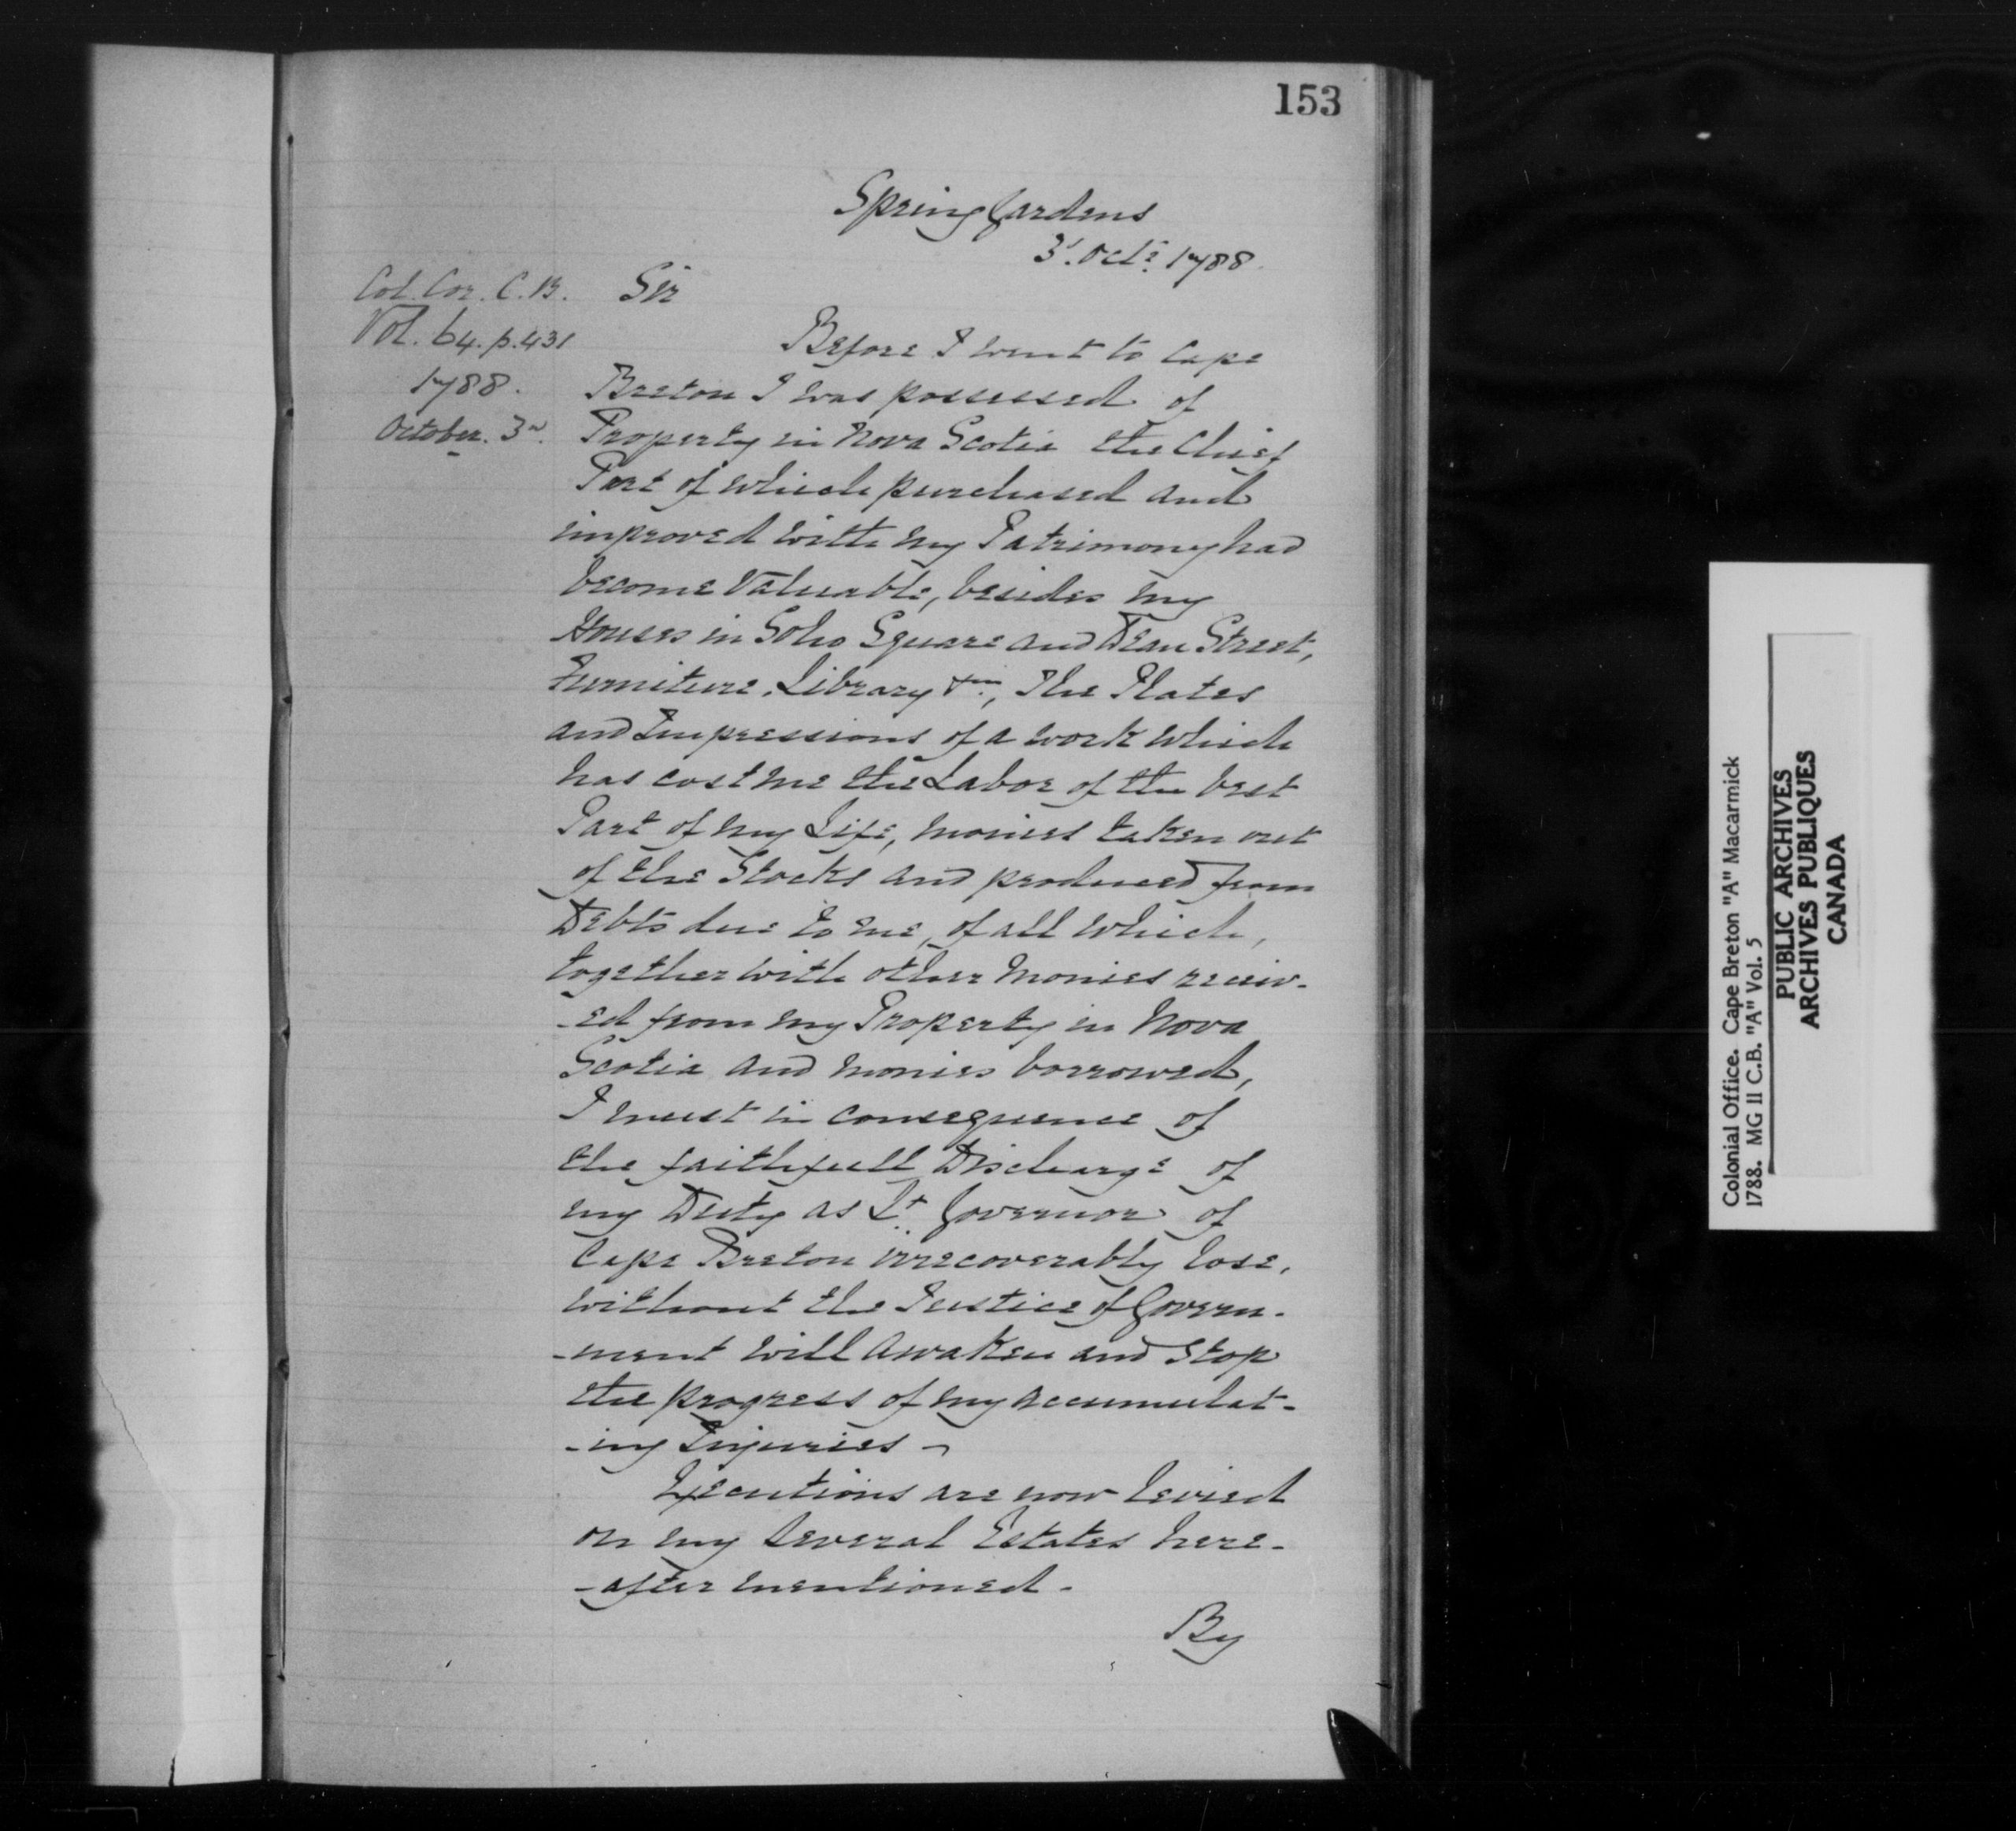 153
Spring Gardens
3d. Octr. 1788.
Col. Cor. C. B.
Vol. 64. p. 431
1788.
October. 3rd.
Sir
Before I went to Cape
Breton I was possessed of
Property in Nova Scotia the Chief
Part of which purchased and
improved with my Patrimony had
become Valuable, besides my
Houses in Soho Square and Dean Street,
Furniture, Library &ca, The Plates
and Impressions of a work which
has cost me the Labor of the best
Part of my Life, monies taken out
of the Stocks and produced from
Debts due to me, of all which,
together with other Monies receiv-
-ed from my Property in Nova
Scotia and monies borrowed,
I must in consequence of
the faithfull Discharge of
my Duty as Lt. Governor of
Cape Breton irrecoverably lose,
without the Justice of Govern-
-ment will awaken and stop
the progress of my accumulat-
-ing Injuries -
Executions are now levied
on my several Estates here-
-after mentioned -
By
Colonial Office. Cape Breton "A" Macarmick
1788. MG 11 C.B. "A" Vol. 5
PUBLIC ARCHIVES
ARCHIVES PUBLIQUES
CANADA